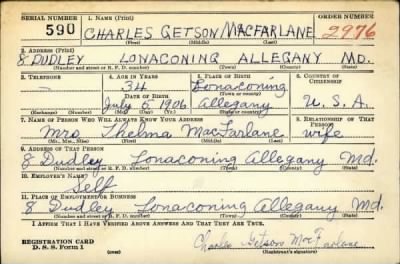 SERIAL NUMBER 1. NAME (Print) ORDER NUMBER
590 CHARLES GETSON MACFARLANE 2976
(First) (Middle) (Last)
2. ADDRESS (Print)
8 DUDLEY LONACONING ALLEGANY MD.
(Number and street or R. F. D. number) (Town) (County) (State)
3. TELEPHONE 4. AGE IN YEARS 5. PLACE OF BIRTH 6. COUNTRY OF CITIZENSHIP
— 34 Lonaconing
DATE OF BIRTH (Town or county)
July 5 1906 Allegany U.S.A.
(Exchange) (Number) (Mo.) (Day) (Yr.) (State or country)
7. NAME OF PERSON WHO WILL ALWAYS KNOW YOUR ADDRESS 8. RELATIONSHIP OF THAT PERSON
Mrs Thelma MacFarlane wife
(Mr., Mrs., Miss) (First) (Middle) (Last)
9. ADDRESS OF THAT PERSON
8 Dudley Lonaconing Allegany Md.
(Number and street or R. F. D. number) (Town) (County) (State)
10. EMPLOYER'S NAME
Self
11. PLACE OF EMPLOYMENT OR BUSINESS
8 Dudley Lonaconing Allegany Md.
(Number and street or R. F. D. number) (Town) (County) (State)
I AFFIRM THAT I HAVE VERIFIED ABOVE ANSWERS AND THAT THEY ARE TRUE.
REGISTRATION CARD
D. S. S. Form 1
Charles Getson MacFarlane
(Registrant's signature)